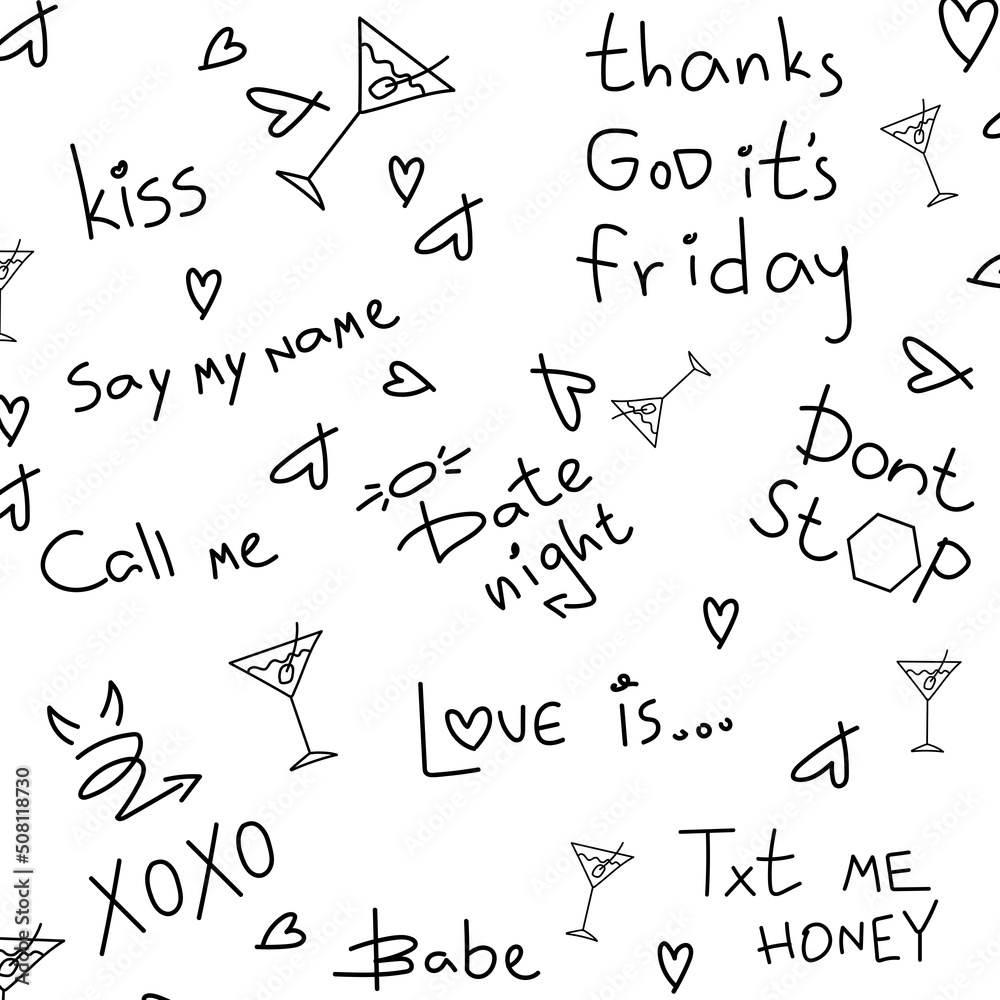 thanks
GoD it's
friday
kiss
Say My NaMe
Dont
Stop
Date
night
Call me
LOVE is...
XOXO
Txt ME
HONEY
Babe
Adobe Stock | #508118730
Adobe Stock